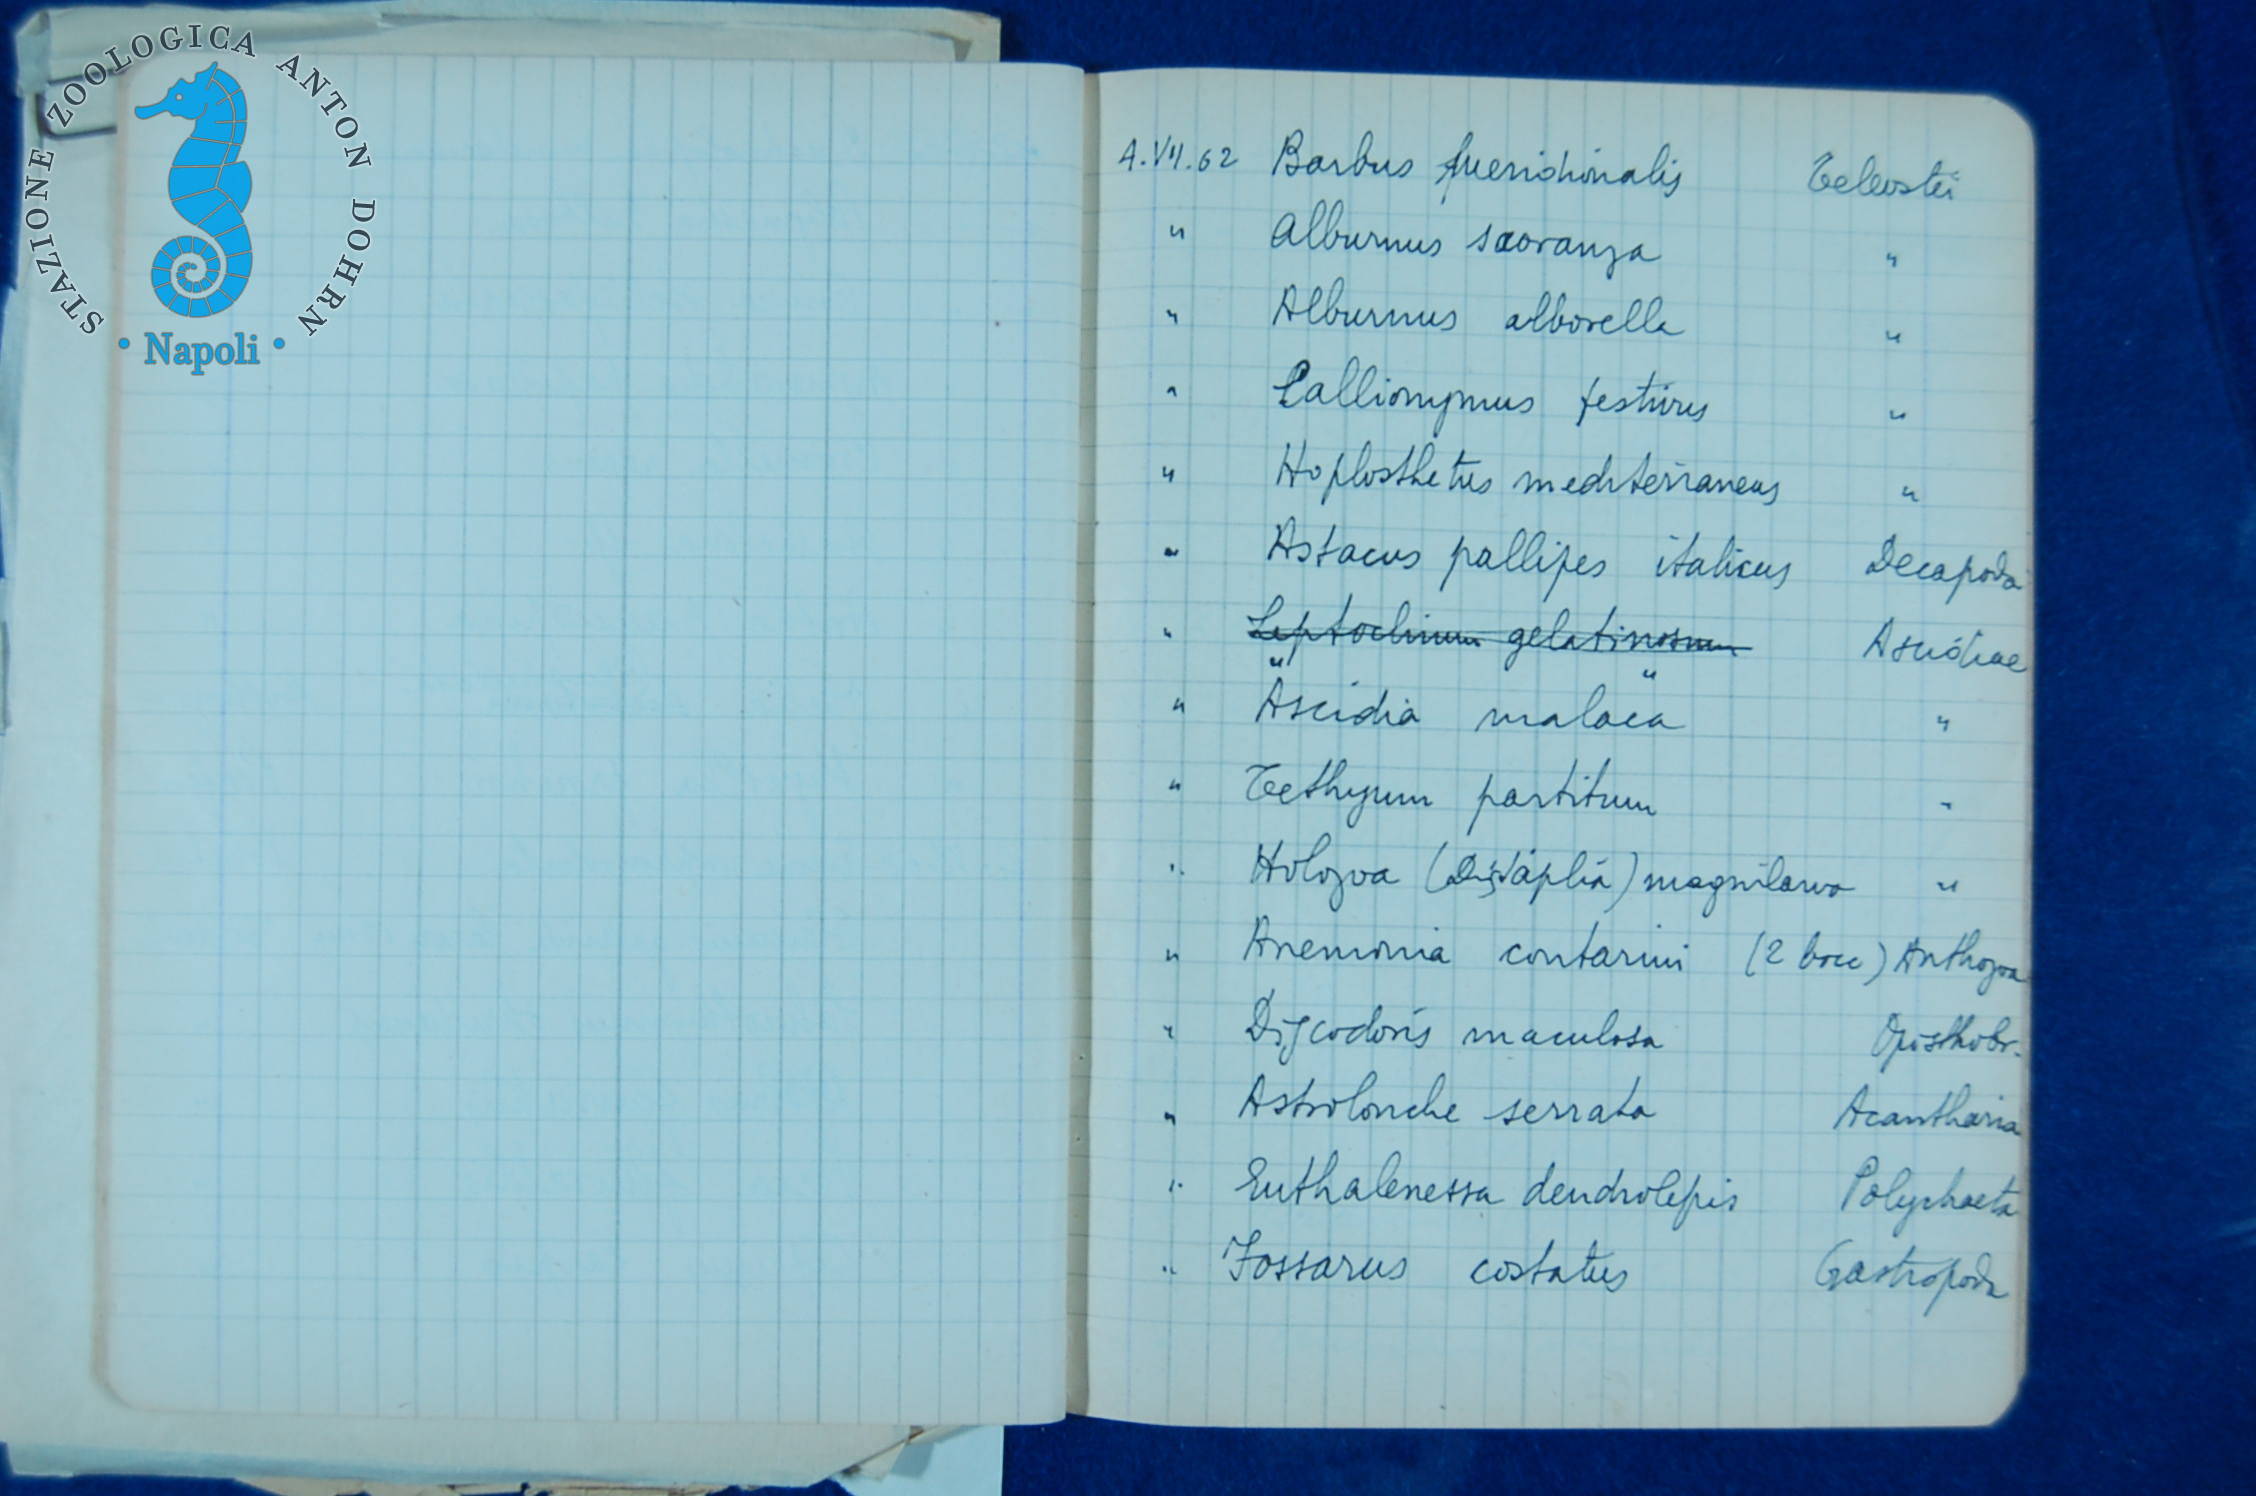 STAZIONE ZOOLOGICA ANTON DOHRN
• Napoli •
4.VII.62 Barbus meridionalis Teleostei
" Alburnus scoranza "
" Alburnus alborella "
" Callionymus festivus "
" Hoplosthetus mediterraneus "
" Astacus pallipes italicus Decapoda
" Leptoclinum gelatinosum Ascidiae
" "
" Ascidia malaca "
" Tethyum partitum "
" Holozoa (Distaplia) magnilarva "
" Anemonia contarini (2 bocc) Anthozoa
" Discodoris maculosa Opisthobr.
" Astrolonche serrata Acantharia
" Euthalenessa dendrolepis Polychaeta
" Fossarus costatus Gastropoda